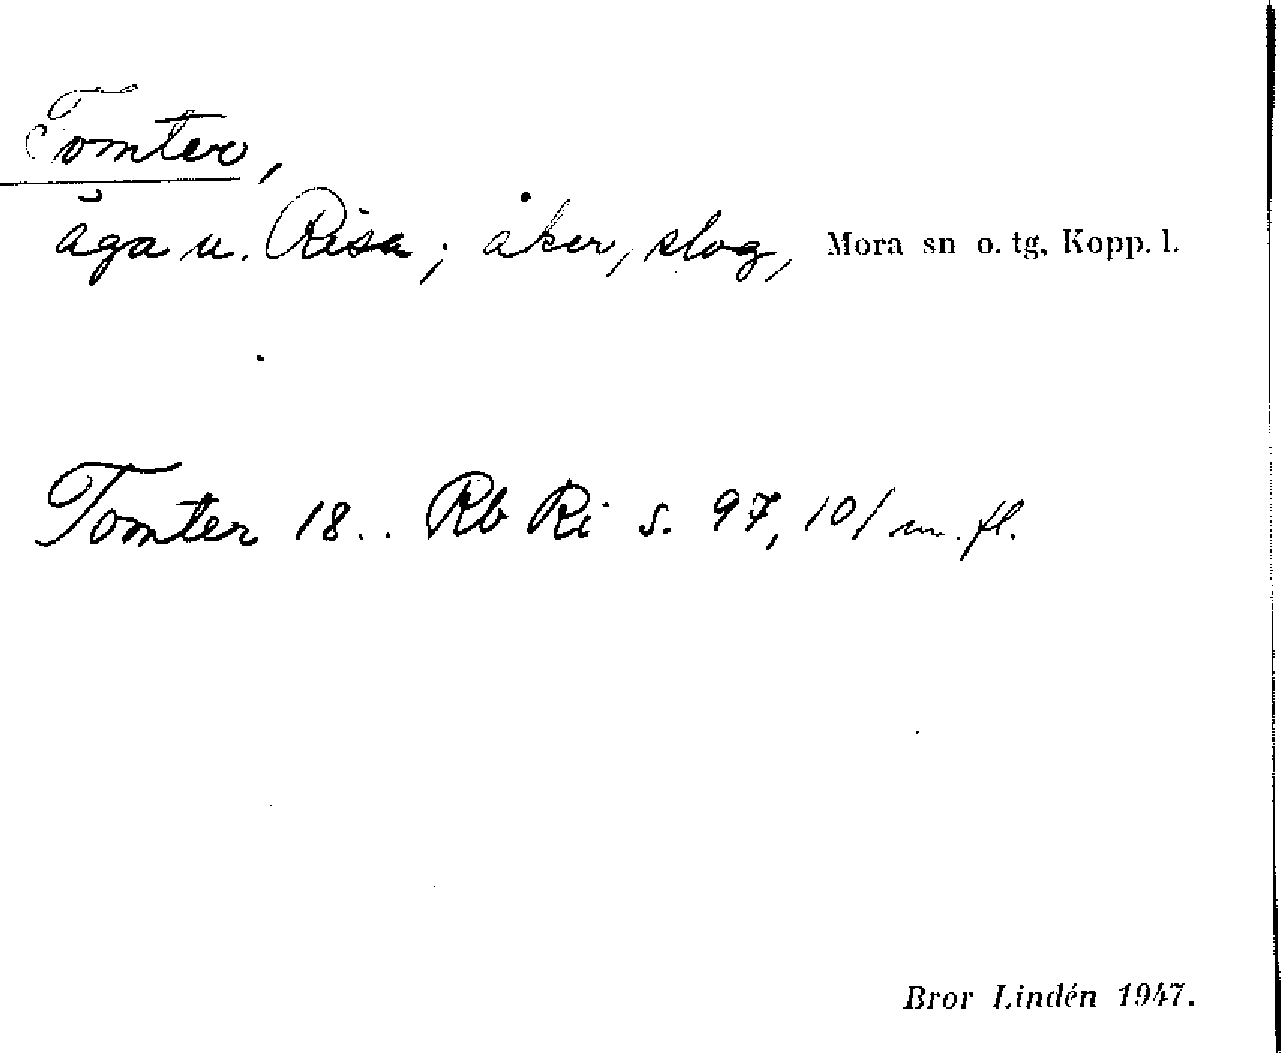 Tomter,
äga u. Risa; åker, slog, Mora sn o. tg, Kopp. l.
Tomter 18.. Rb Ri s. 97, 101 m. fl.
Bror Lindén 1947.